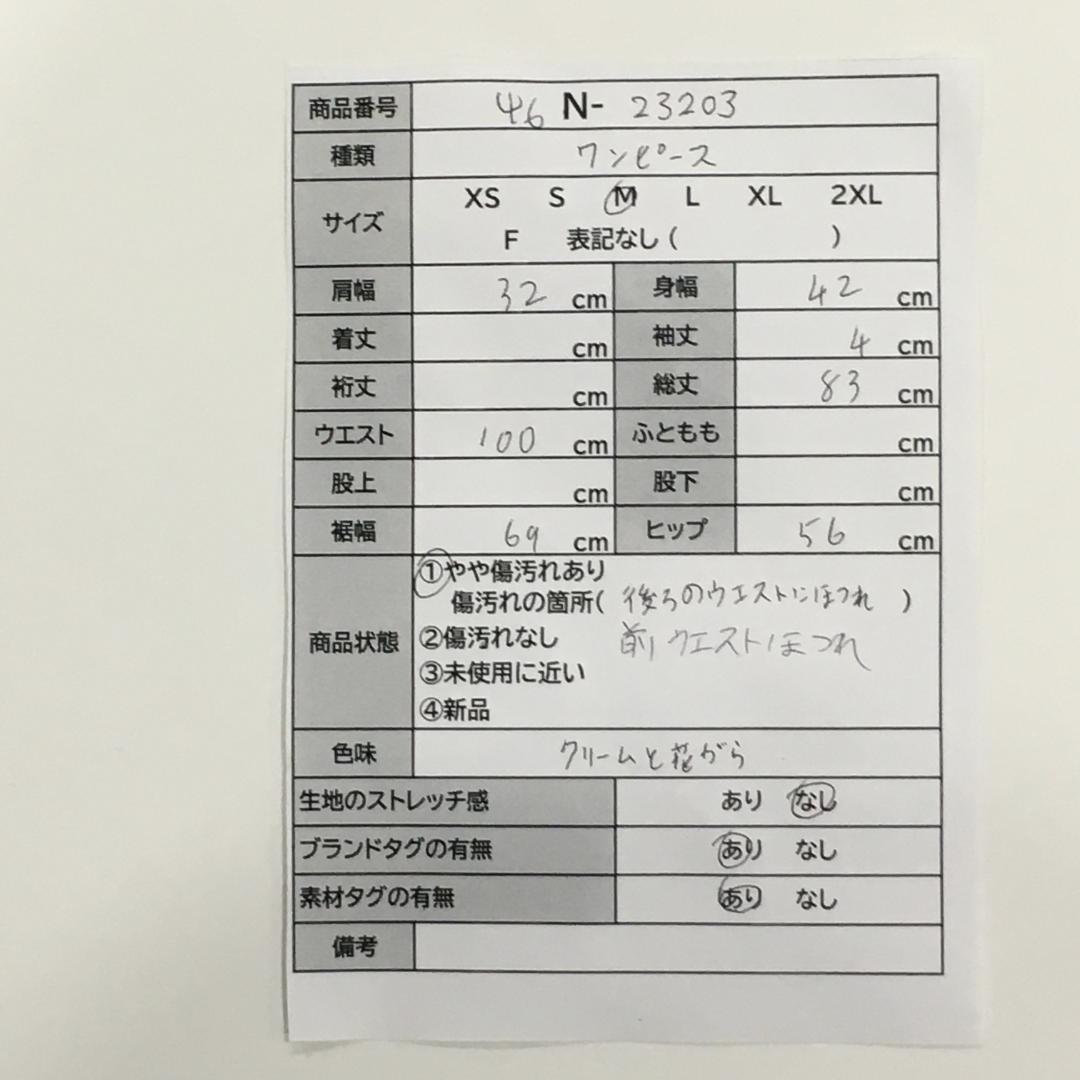 商品番号 46 N- 23203
種類 ワンピース
サイズ XS S M L XL 2XL
F 表記なし ( )
肩幅 32 cm 身幅 42 cm
着丈 cm 袖丈 4 cm
裄丈 cm 総丈 83 cm
ウエスト 100 cm ふともも cm
股上 cm 股下 cm
裾幅 69 cm ヒップ 56 cm
商品状態 ①やや傷汚れあり
傷汚れの箇所( 後ろのウエストにほつれ )
②傷汚れなし 前ウエストほつれ
③未使用に近い
④新品
色味 クリームと花がら
生地のストレッチ感 あり なし
ブランドタグの有無 あり なし
素材タグの有無 あり なし
備考